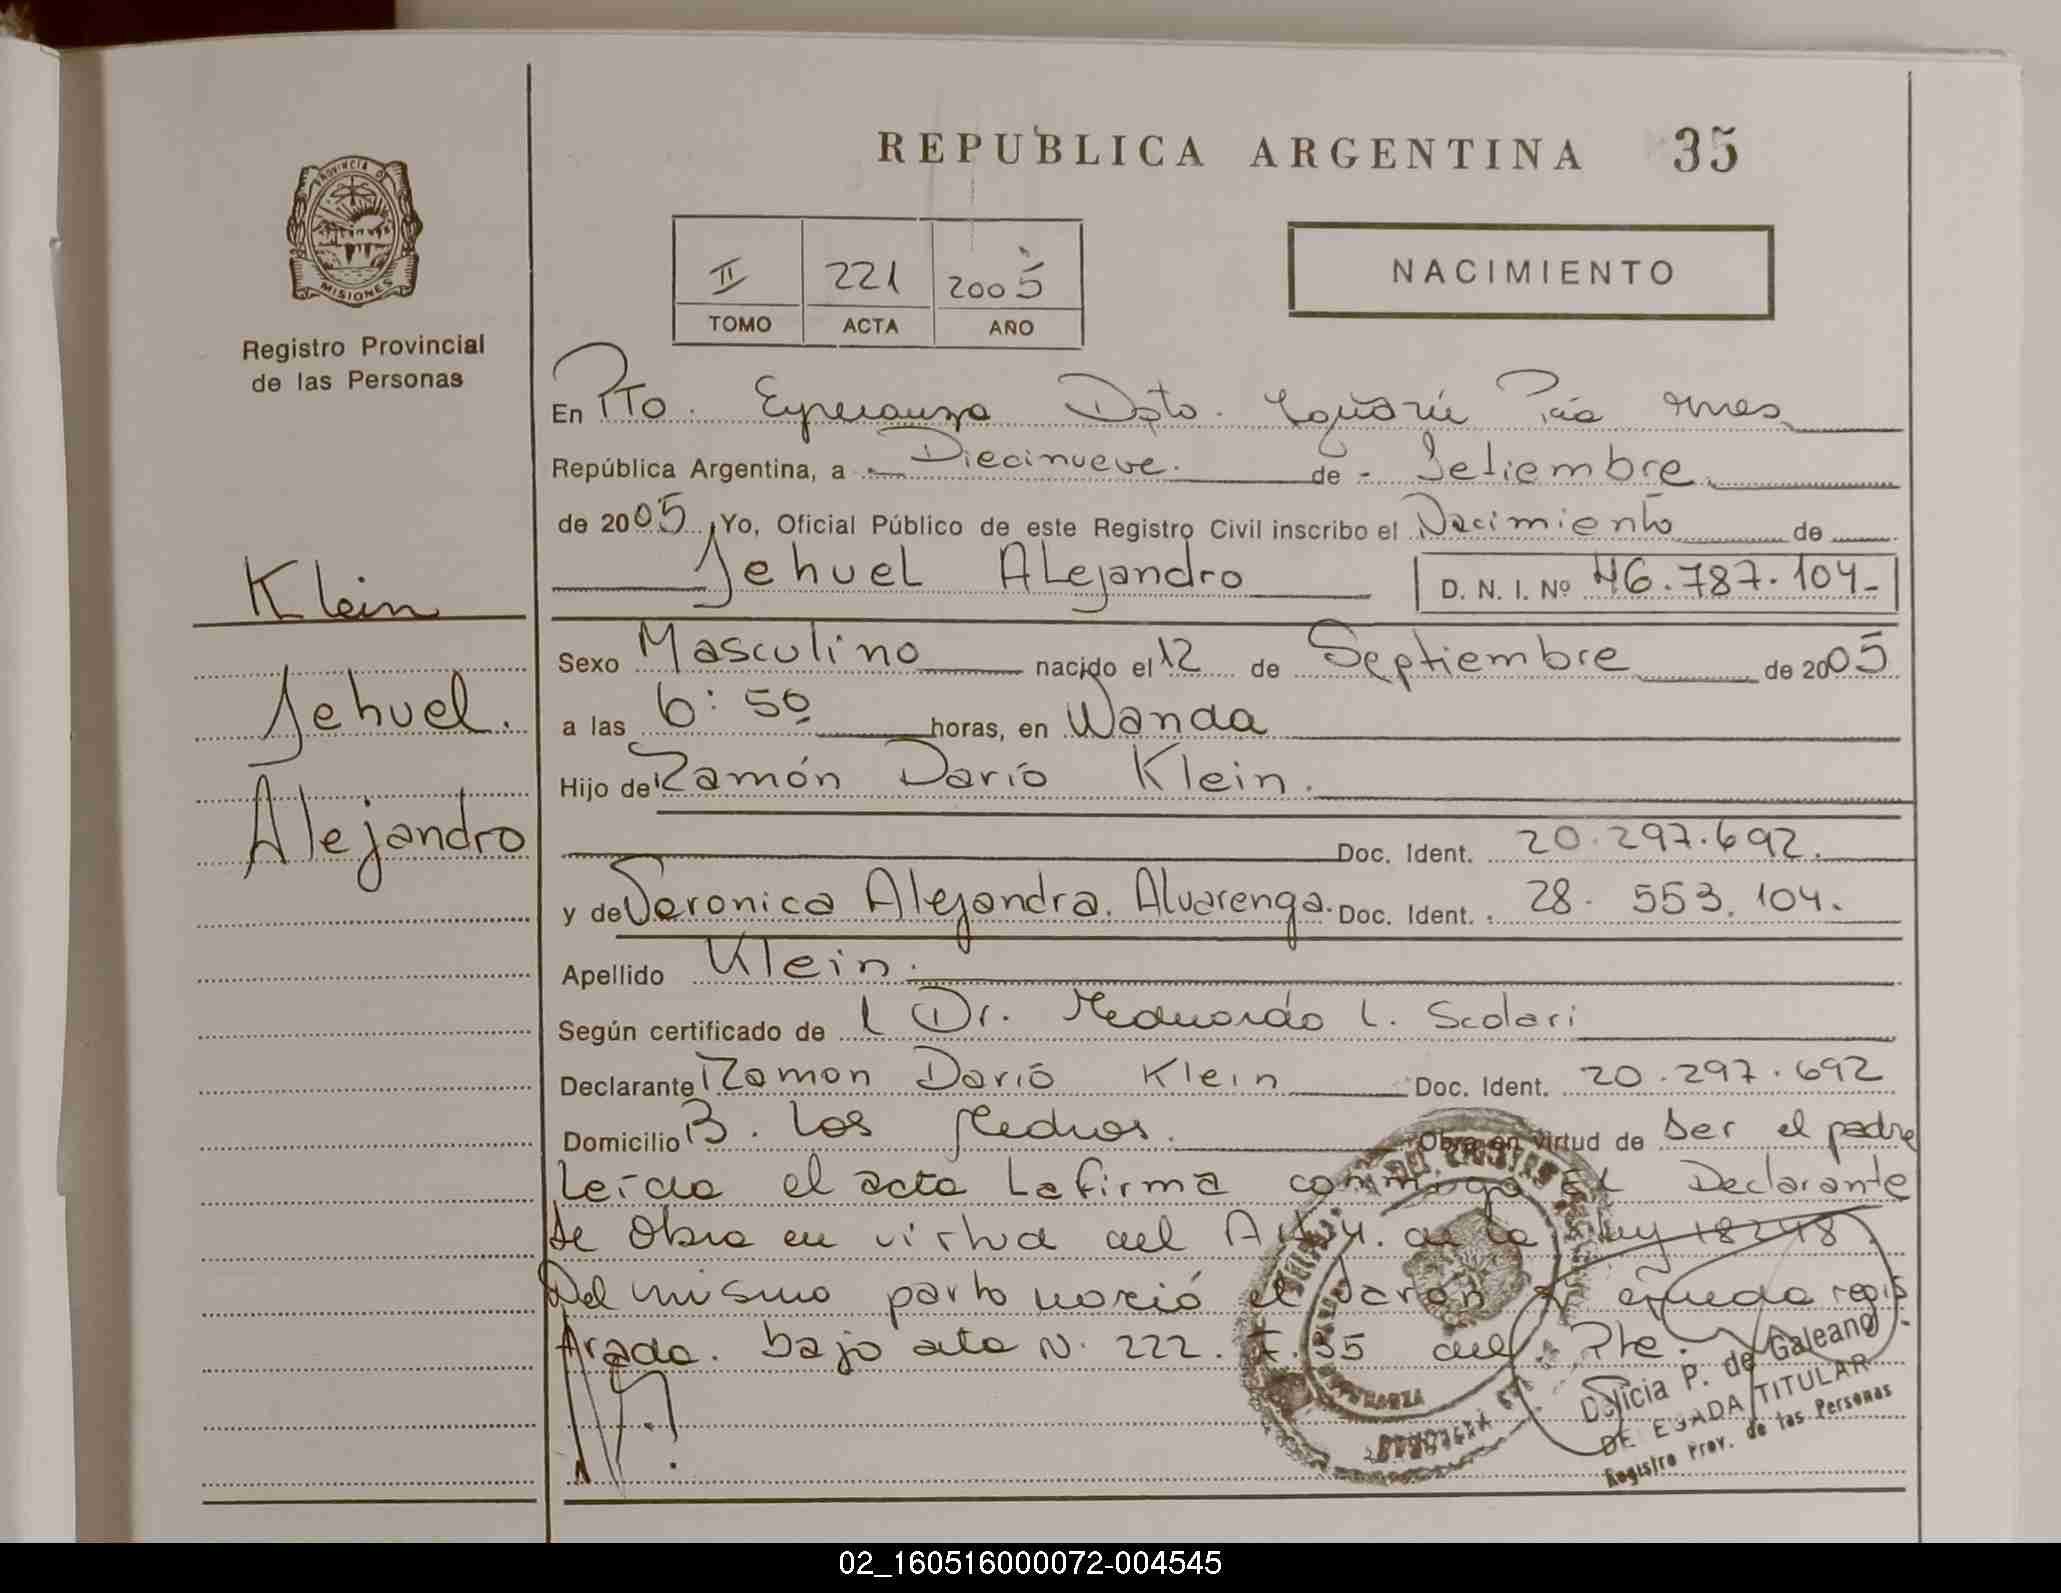 REPUBLICA ARGENTINA 35
PROVINCIA D
MISIONES
Registro Provincial
de las Personas
II 221 2005
TOMO ACTA AÑO
NACIMIENTO
En Pto. Esperanza Dpto. Iguazú Pcia Mnes
República Argentina, a Diecinueve. de Setiembre
de 2005 Yo, Oficial Público de este Registro Civil inscribo el Nacimiento de
Jehuel Alejandro D. N. I. Nº 46.787.104-
Klein
Jehuel.
Alejandro
Sexo Masculino nacido el 12 de Septiembre de 2005
a las 6:50 horas, en Wanda
Hijo de Ramón Darío Klein.
Doc. Ident. 20.297.692.
y de Veronica Alejandra. Alvarenga. Doc. Ident. 28. 553. 104.
Apellido Klein.
Según certificado de l Dr. L. Scolari
Declarante Ramon Darió Klein Doc. Ident. 20.297.692
Domicilio B. Los Obra en virtud de Ser el padre
Leída el acta La firma conmigo El Declarante
Se Obra en virtud del Art. 4. de la Ley 18248.
Del mismo parto nació el varón q' queda regis
trada. bajo acta N. 222. F. 35 del Pte.
Delicia P. de Galeano
DELEGADA TITULAR
Registro Prov. de las Personas
02_160516000072-004545